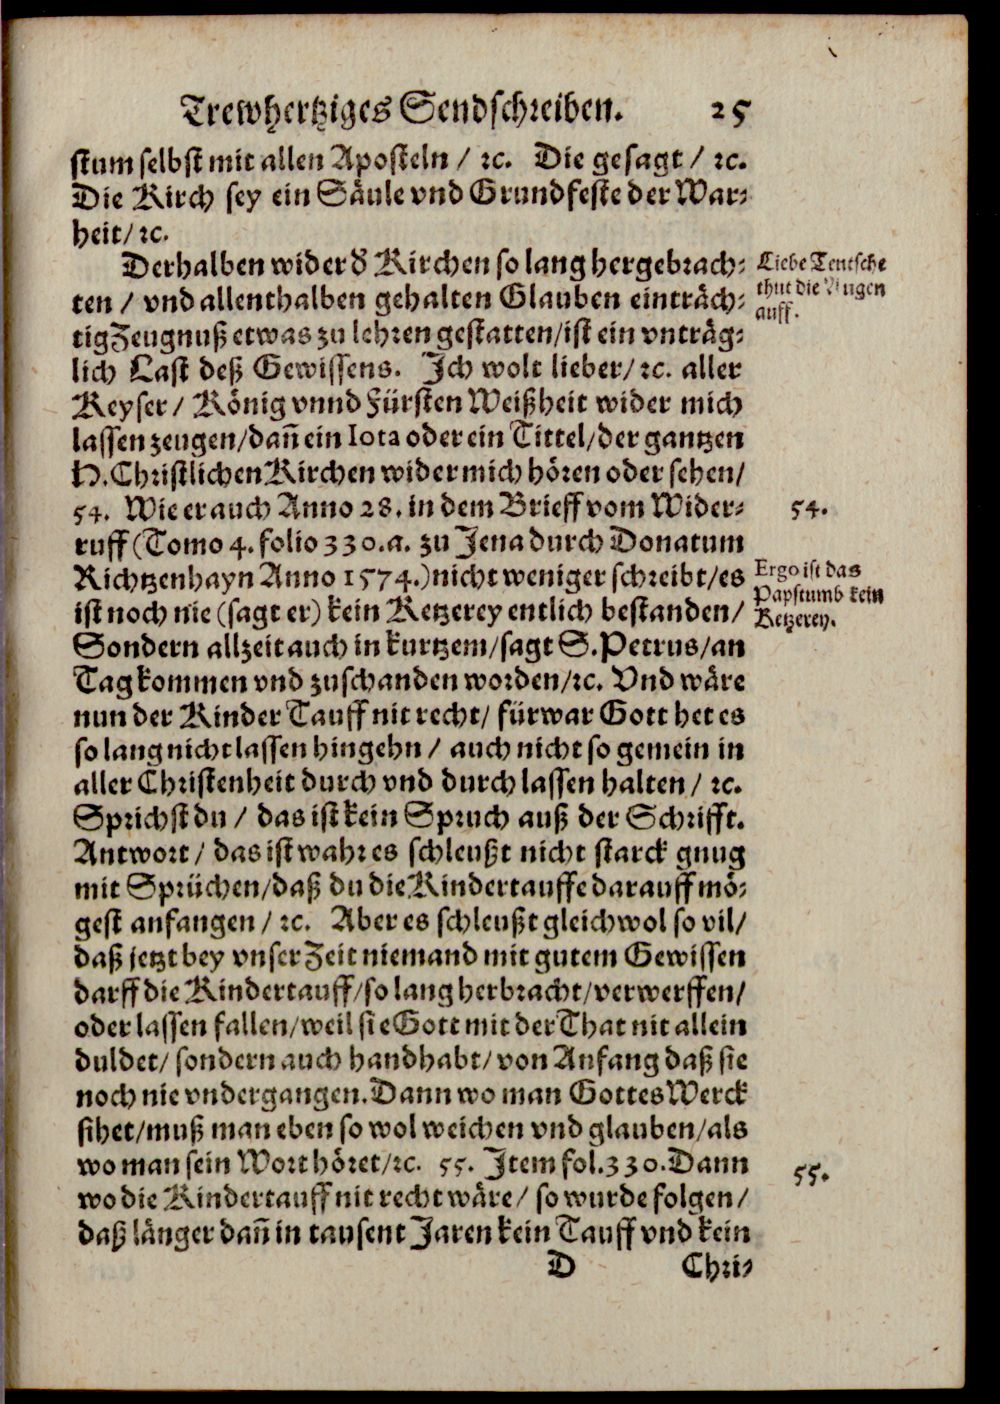 Trewhertziges Sendschreiben. 25
stum selbst mit allen Aposteln / ꝛc. Die gesagt / ꝛc.
Die Kirch sey ein Säule vnd Grundfeste der War⸗
heit / ꝛc.
Derhalben wider d' Kirchen so lang hergebrach⸗
Liebe Teutsche
ten / vnd allenthalben gehalten Glauben einträch⸗
thut die Augen
auff.
tig Zeugnuß etwas zu lehren gestatten / ist ein vnträg⸗
lich Last deß Gewissens. Ich wolt lieber / ꝛc. aller
Keyser / König vnnd Fürsten Weißheit wider mich
lassen zeugen / dañ ein Iota oder ein Tittel / der gantzen
H. Christlichen Kirchen wider mich hören oder sehen /
54. Wie er auch Anno 28. in dem Brieff vom Wider⸗
54.
ruff (Tomo 4. folio 330.a. zu Jena durch Donatum
Richtzenhayn Anno 1574.) nicht weniger schreibt / es
Ergo ist das
Papstumb kein
ist noch nie (sagt er) kein Ketzerey entlich bestanden /
Ketzerey.
Sondern allzeit auch in kurtzem / sagt S. Petrus / an
Tag kommen vnd zuschanden worden / ꝛc. Vnd wäre
nun der Kinder Tauff nit recht / fürwar Gott het es
so lang nicht lassen hingehn / auch nicht so gemein in
aller Christenheit durch vnd durch lassen halten / ꝛc.
Sprichst du / das ist kein Spruch auß der Schrifft.
Antwort / das ist wahr es schleußt nicht starck gnug
mit Sprüchen / daß du die Kindertauffe darauff mö⸗
gest anfangen / ꝛc. Aber es schleußt gleichwol so vil /
daß jetzt bey vnser Zeit niemand mit gutem Gewissen
darff die Kindertauff / so lang herbracht / verwerffen /
oder lassen fallen / weil sie Gott mit der That nit allein
duldet / sondern auch handhabt / von Anfang daß sie
noch nie vndergangen. Dann wo man Gottes Werck
sihet / muß man eben so wol weichen vnd glauben / als
wo man sein Wort höret / ꝛc. 55. Item fol. 330. Dann
55.
wo die Kindertauff nit recht wäre / so wurde folgen /
daß länger dañ in tausent Jaren kein Tauff vnd kein
D Chri⸗